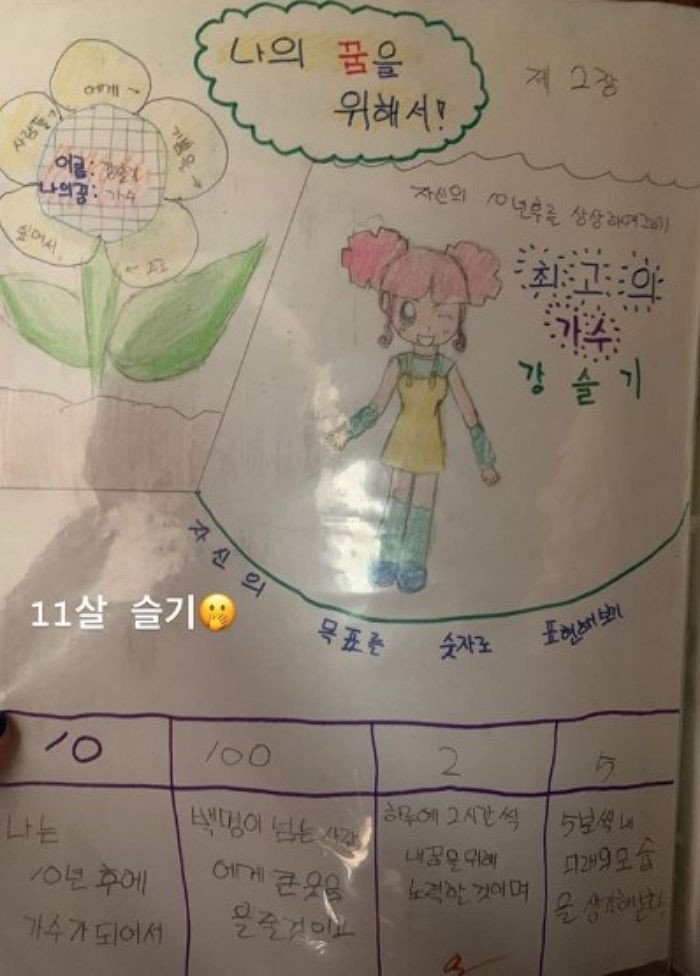 나의 꿈을
위해서!
제 2장
에게→
사람들
기쁨을→
이름: 강슬기
나의꿈: 가수
싶어서.
←주고
자신의 10년후를 상상하여그리기
최고의
가수
강 슬 기
자신의
목표를 숫자로 표현해보기
11살 슬기🫢
10
나는
10년 후에
가수가 되어서
100
백명이 넘는 사람
에게 큰 웃음
을 줄것이고
2
하루에 2시간 씩
내꿈을 위해
노력할 것이며
5
5분씩 내
미래의 모습
을 생각해본다.